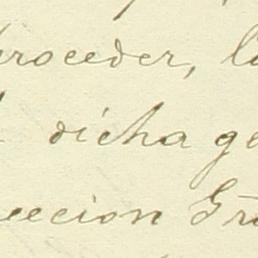 proceder, l
dicha ge
eccion Gra